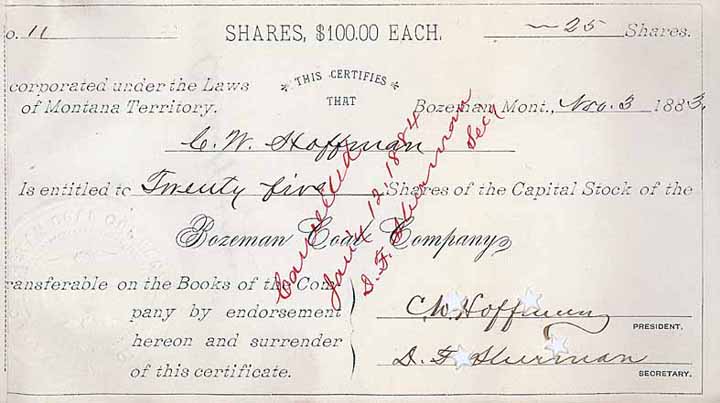 o. 11 SHARES, $100.00 EACH. 25 Shares.
corporated under the Laws THIS CERTIFIES
of Montana Territory. THAT Bozeman Mont., Nov. 3 1883.
C. W. Hoffman
Is entitled to Twenty five Shares of the Capital Stock of the
Bozeman Coal Company
ransferable on the Books of the Com-
pany by endorsement C. W. Hoffman
PRESIDENT.
hereon and surrender D. F. Sherman
of this certificate. SECRETARY.
Cancelled
12 1884
D. F. Sherman
Secy